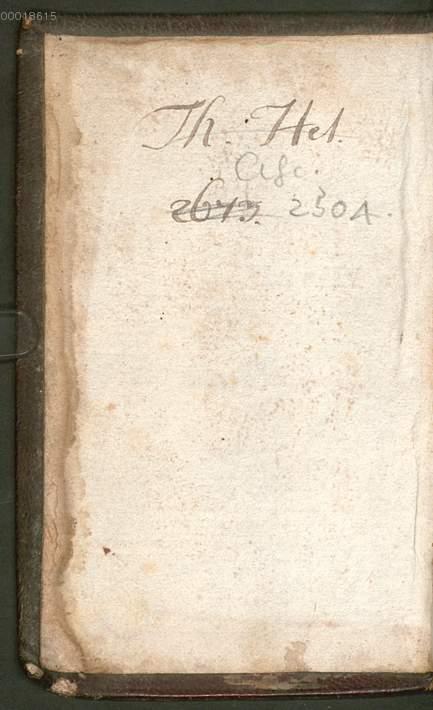 00018615
Th. Het.
Asc.
2673. 230A.